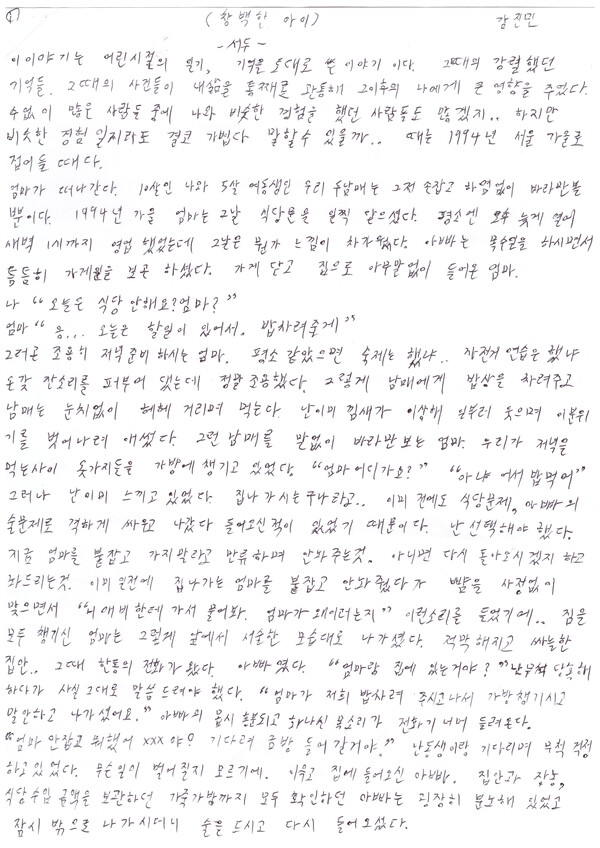 ①
(창백한 아이) 감진민
-서두-
이 이야기는 어린시절의 일기, 기억을 토대로 쓴 이야기 이다. 그때의 강렬했던
기억들. 그때의 사건들이 내 삶을 통째로 관통해 그이후의 나에게 큰 영향을 주었다.
수없이 많은 사람들 중에 나와 비슷한 경험을 했던 사람들도 많겠지.. 하지만
비슷한 경험 일지라도 결코 가볍다 말할수 있을까.. 때는 1994년 서울 가을로
접어들 때다.
엄마가 떠나간다. 10살인 나와 5살 여동생인 우리 두남매는 그저 손잡고 하염없이 바라만볼
뿐이다. 1994년 가을 엄마는 그날 식당문을 일찍 닫으셨다. 평소엔 오후 늦게 열어
새벽 1시까지 영업 했었는데 그날은 뭔가 느낌이 차가웠다. 아빠는 목수일을 하시면서
틈틈히 가게일을 보곤 하셨다. 가게 닫고 집으로 아무말없이 들어온 엄마.
나 "오늘은 식당 안해요? 엄마?"
엄마 "응... 오늘은 할일이 있어서. 밥차려줄게"
그러곤 조용히 저녁준비 하시는 엄마. 평소 같았으면 숙제는 했냐.. 자전거 연습은 했냐
온갖 잔소리를 퍼부어 댔는데 정말 조용했다. 그렇게 남매에게 밥상을 차려주고
남매는 눈치없이 헤헤 거리며 먹는다. 난 이미 낌새가 이상해 일부러 웃으며 이분위
기를 벗어나려 애썼다. 그런 남매를 말없이 바라만 보는 엄마. 우리가 저녁을
먹는사이 옷가지들을 가방에 챙기고 있었다. "엄마 어디가요?" "아냐 어서 밥먹어"
그러나 난 이미 느끼고 있었다. 집나가시는구나라고.. 이미 전에도 식당문제, 아빠의
술문제로 격하게 싸우고 나갔다 들어오신적이 있었기 때문이다. 난 선택해야 했다.
지금 엄마를 붙잡고 가지말라고 만류하며 안놔주는것. 아니면 다시 돌아오시겠지 하고
놔드리는것. 이미 일전에 집나가는 엄마를 붙잡고 안놔줬다가 뺨을 사정없이
맞으면서 "니 애비한테 가서 물어봐. 엄마가 왜이러는지" 이런소리를 들었기에.. 짐을
모두 챙기신 엄마는 그렇게 앞에서 서술한 모습대로 나가셨다. 적막해지고 싸늘한
집안.. 그때 한통의 전화가 왔다. 아빠였다. "엄마랑 집에 있는거야?" 난 무척 당황해
하다가 사실 그대로 말씀 드려야 했다. "엄마가 저희 밥차려 주시고나서 가방챙기시고
말안하고 나가셨어요." 아빠의 몹시 흥분되고 화나신 목소리가 전화기 너머 들려온다.
"엄마 안잡고 뭐했어 xxx야? 기다려 금방 들어갈거야." 난 동생이랑 기다리며 무척 걱정
하고 있었다. 무슨일이 벌어질지 모르기에. 이윽고 집에 들어오신 아빠. 집안과 장농,
식당수입 금액을 보관하던 가죽가방까지 모두 확인하던 아빠는 굉장히 분노해 있었고
잠시 밖으로 나가시더니 술을 드시고 다시 들어오셨다.